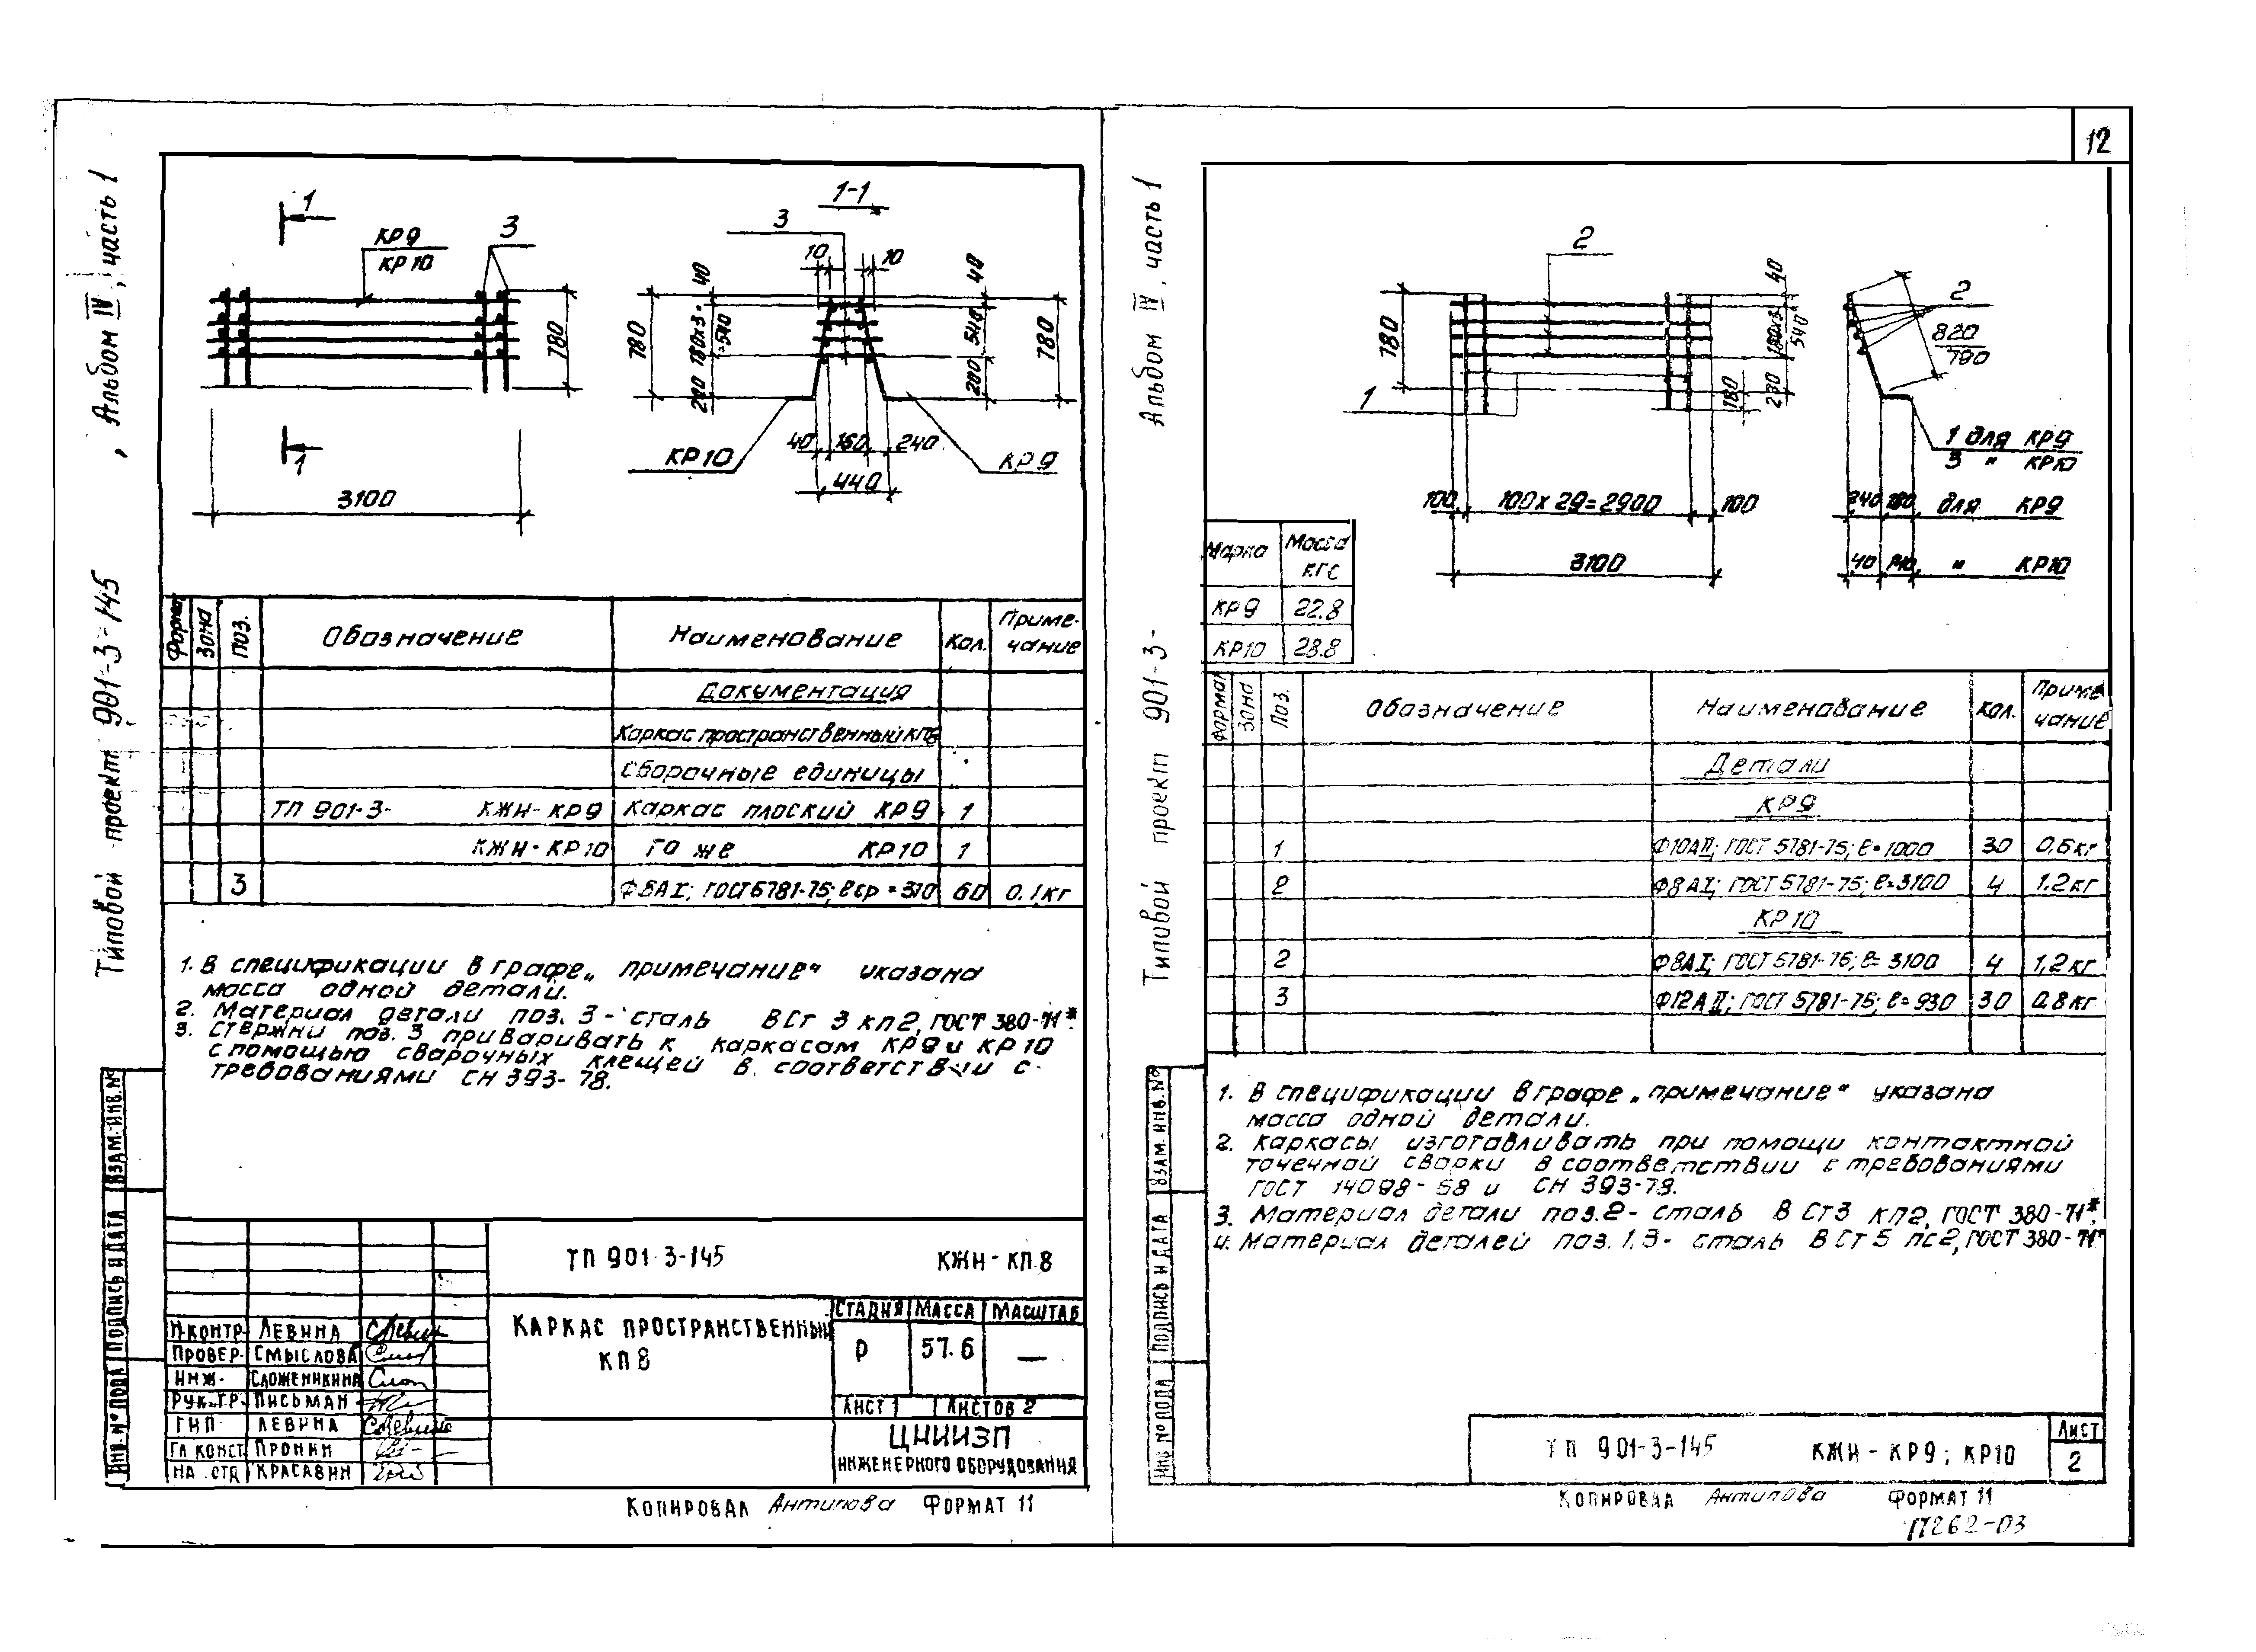 12
Альбом IV, часть 1
Типовой проект 901-3-145
1
КР9
КР10
3
780
1
3100
1-1
3
10
10
40
180х3=
=540
200
780
40
540
200
780
КР10
КР9
40
160
240
440
Формат
Зона
Поз.
Обозначение
Наименование
Кол.
Приме-
чание
Документация
Каркас пространственный КП8
Сборочные единицы
ТП 901-3- КЖН-КР9 Каркас плоский КР9 1
КЖН-КР10 То же КР10 1
3 ГОСТ 5781-75; ℓср = 310 60 0.1кг
1. В спецификации в графе „примечание“ указана
масса одной детали.
2. Материал детали поз. 3 - сталь ВСт 3 кп2, ГОСТ 380-71*.
3. Стержни поз. 3 приваривать к каркасам КР9 и КР10
с помощью сварочных клещей в соответствии с
требованиями СН 393-78.
ВЗАМ. ИНВ. №
ПОДПИСЬ И ДАТА
ИНВ. № ПОДЛ
ТП 901-3-145 КЖН-КП 8
КАРКАС ПРОСТРАНСТВЕННЫЙ
КП 8
СТАДИЯ МАССА МАСШТАБ
Р 57.6 —
ЛИСТ 1 ЛИСТОВ 2
ЦНИИЭП
ИНЖЕНЕРНОГО ОБОРУДОВАНИЯ
Н.КОНТР. ЛЕВИНА
ПРОВЕР. СМЫСЛОВА
ИНЖ. СЛОЖЕНИКИНА
РУК.ГР. ПИСЬМАН
ГИП ЛЕВИНА
ГЛ.КОНСТ. ПРОНИН
НА. ОТД КРАСАВИН
КОПИРОВАЛ Антипова ФОРМАТ 11
Альбом IV, часть 1
Типовой проект 901-3-
2
780
1
40
180х3=
540
180
230
100
100х29=2900
100
3100
2
820
790
1 для КР9
3 " КР10
240 180 для КР9
40 140 " КР10
Марка
Масса
кгс
КР9 22.8
КР10 28.8
Формат
Зона
Поз.
Обозначение
Наименование
Кол.
Приме
чание
Детали
КР9
1 Ф10АII; ГОСТ 5781-75; ℓ=1000 30 0.6кг
2 Ф8АI; ГОСТ 5781-75; ℓ=3100 4 1.2кг
КР10
2 Ф8АI; ГОСТ 5781-75; ℓ= 3100 4 1,2кг
3 Ф12АII; ГОСТ 5781-75; ℓ= 930 30 0.8кг
1. В спецификации в графе „примечание“ указана
масса одной детали.
2. Каркасы изготавливать при помощи контактной
точечной сварки в соответствии с требованиями
ГОСТ 14098-68 и СН 393-78.
3. Материал детали поз. 2 - сталь ВСт3 кп2, ГОСТ 380-71*.
4. Материал деталей поз. 1, 3 - сталь ВСт5 пс2, ГОСТ 380-71*
ВЗАМ. ИНВ. №
ПОДПИСЬ И ДАТА
ИНВ. № ПОДЛ
ТП 901-3-145 КЖН-КР9; КР10
ЛИСТ
2
КОПИРОВАЛ Антипова ФОРМАТ 11
17262-03